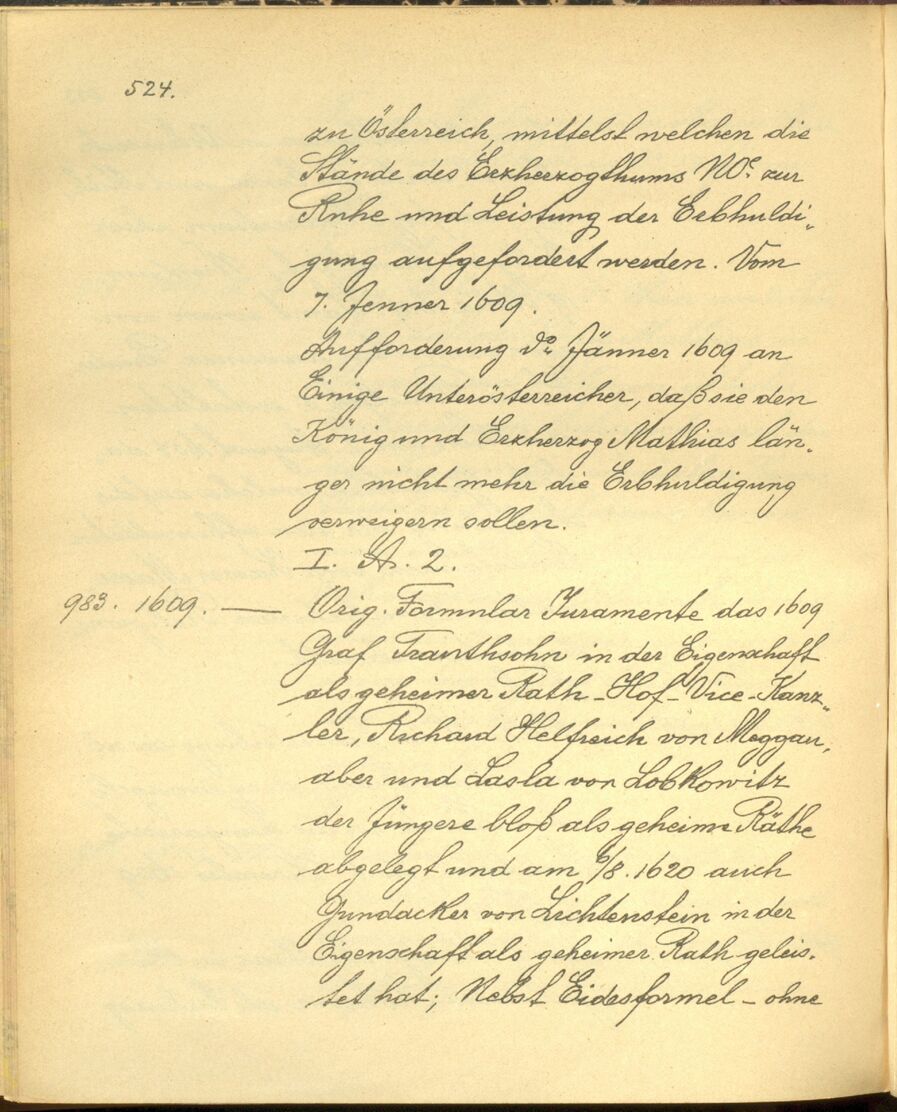 524.
zu Österreich, mittelst welchen die
Stände des Erzherzogthums NOe. zur
Ruhe und Leistung der Erbhuldi„
gung aufgefordert werden. Vom
7. Jenner 1609.
Aufforderung do. Jänner 1609 an
Einige Unterösterreicher, daß sie den
König und Erzherzog Mathias län„
ger nicht mehr die Erbhuldigung
verweigern sollen.
I. A. 2.
983. 1609. — Orig. Formular Juramente das 1609
Graf Trauthsohn in der Eigenschaft
als geheimer Rath-Hof-Vice-Kanz„
ler, Richard Helfreich von Meggau,
aber und Lasla von Lobkowitz
der Jüngere bloß als geheime Räthe
abgelegt und am 6/8. 1620 auch
Gundacker von Lichtenstein in der
Eigenschaft als geheimer Rath geleis„
tet hat; Nebst Eidesformel - ohne